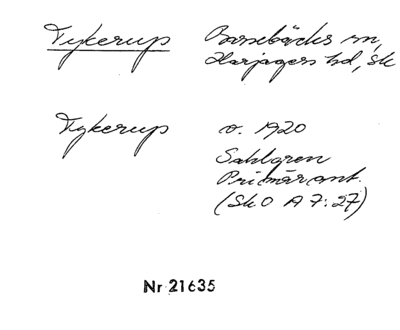 Tykerup Borsebäcks sn,
Harjagers hd, Sk
Tykerup o. 1920
Sahlgren
Primär ant.
(SkO A 7:27)
Nr 21635